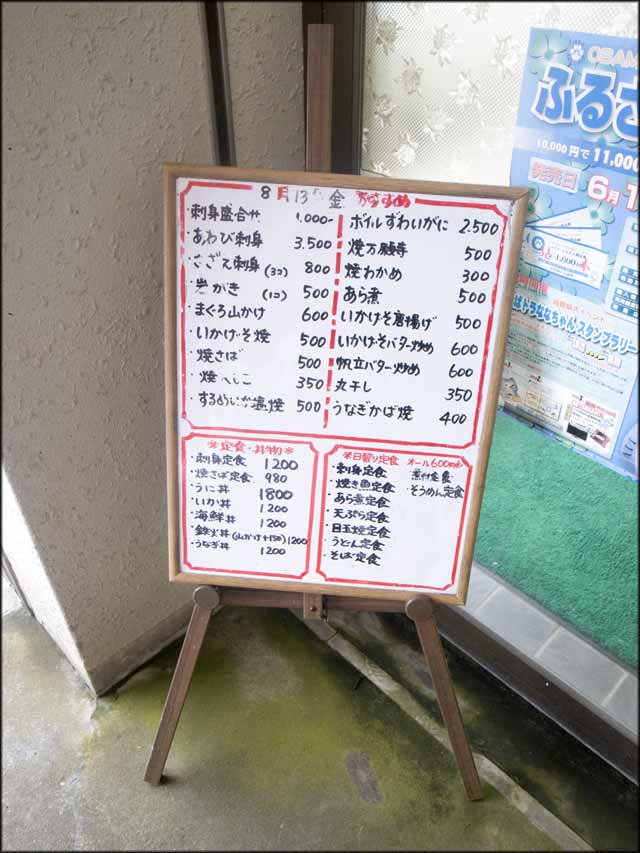 8月13日 金 おすすめ
・刺身盛合せ 1.000-
・あわび刺身 3.500
・さざえ刺身 (3コ) 800
・岩がき (1コ) 500
・まぐろ山かけ 600
・いかげそ焼 500
・焼さば 500
・焼へしこ 350
・するめいか塩焼 500
ボイルずわいがに 2.500
焼万願寺 500
焼わかめ 300
あら煮 500
いかげそ唐揚げ 500
いかげそバター炒め 600
帆立バター炒め 600
丸干し 350
うなぎかば焼 400
＊定食・丼物＊
・刺身定食 1200
・焼さば定食 980
・うに丼 1800
・いか丼 1200
・海鮮丼 1200
・鉄火丼 (山かけ+150) 1200
・うなぎ丼 1200
＊日替り定食 オール600円
・刺身定食
・焼き魚定食
・あら煮定食
・天ぷら定食
・目玉焼定食
・うどん定食
・そば定食
・煮付定食
・そうめん定食
OSAM
ふるさ
10,000円で11,000
発売日 6月1
ばトラななちゃん・スタンプラリー